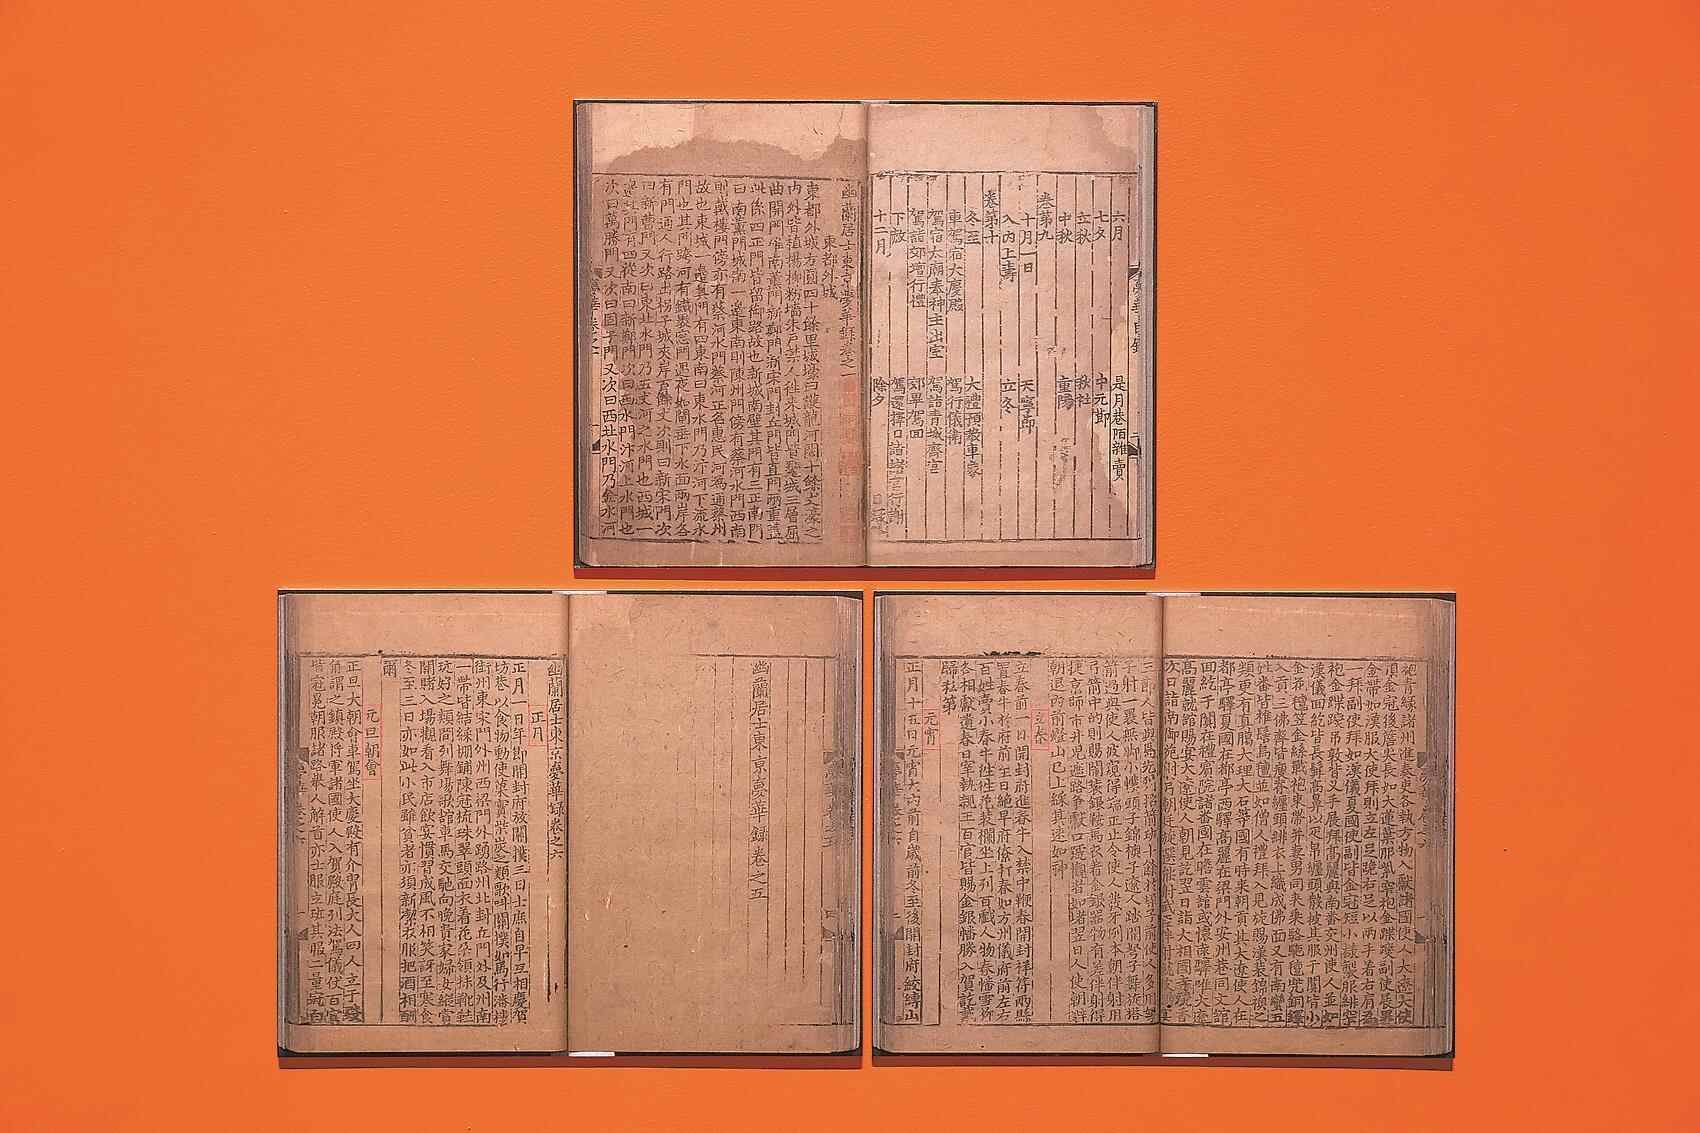 六月　是月巷陌雜賣
七夕　中元節
立秋　秋社
中秋　重陽
卷第九
十月一日　天寧節
入內上壽　立冬
卷第十
冬至　大禮預教車象
車駕宿大慶殿　駕行儀衛
駕宿太廟奉神主出室　駕詣青城齋宮
駕詣郊壇行禮　郊畢駕回
下赦　駕還擇日詣諸宮行謝
十二月　除夕
幽蘭居士東京夢華錄卷之一
東都外城
東都外城方圓四十餘里城壕曰護龍河闊十餘丈濠之
內外皆植楊柳粉墻朱戶禁人往來城門皆甕城三層屈
曲開門唯南薰門新鄭門新宋門封丘門皆直門兩重蓋
此係四正門皆留御路故也新城南壁其門有三正南門
曰南薰門城南一邊東南則陳州門傍有蔡河水門西南
則戴樓門傍亦有蔡河水門蔡河正名惠民河為通蔡州
故也東城一邊其門有四東南曰東水門乃汴河下流水
門也其門跨河有鐵裹窗門遇夜如閘垂下水面兩岸各
有門通人行路出枴子城夾岸百餘丈次則曰新宋門次
曰新曹門又次曰東北水門乃五丈河之水門也西城一
邊其門有四從南曰新鄭門次曰西水門汴河上水門也
次曰萬勝門又次曰固子門又次曰西北水門乃金水河
幽蘭居士東京夢華錄卷之五
幽蘭居士東京夢華錄卷之六
正月
正月一日年節開封府放關撲三日士庶自早互相慶賀
坊巷以食物動使果實柴炭之類歌叫關撲如馬行潘樓
街州東宋門外州西梁門外踴路州北封丘門外及州南
一帶皆結綵棚鋪陳冠梳珠翠頭面衣着花朵領抹靴鞋
玩好之類間列舞場歌館車馬交馳向晚貴家婦女縱賞
關賭入場觀看入市店飲宴慣習成風不相笑訝至寒食
冬至三日亦如此小民雖貧者亦須新潔衣服把酒相酬
爾
元旦朝會
正旦大朝會車駕坐大慶殿有介冑長大人四人立于殿
角謂之鎮殿將軍諸國使人入賀殿庭列法駕儀仗百官
皆冠冕朝服諸路舉人解首亦士服立班其服二量冠白
袍青緣諸州進奏吏各執方物入獻諸國使人大遼大使
頂金冠後簷尖長如大蓮葉服紫窄袍金蹀躞副使展裹
金帶如漢服大使拜則立左足跪右足以兩手着右肩為
一拜副使拜如漢儀夏國使副皆金冠短小樣製服緋窄
袍金蹀躞吊敦背叉手展拜高麗與南番交州使人並如
漢儀回紇皆長髯高鼻以疋帛纏頭散披其服于闐皆小
金花氊笠金絲戰袍束帶并妻男同來乘駱駝氊兜銅鐸
入貢三佛齊皆瘦脊纏頭緋衣上織成佛面又有南蠻五
姓番皆椎髻烏氊並如僧人禮拜入見旋賜漢裝錦襖之
類更有真臘大理大石等國有時來朝貢其大遼使人在
都亭驛夏國在都亭西驛高麗在梁門外安州巷同文館
回紇于闐在禮賓院諸番國在瞻雲館或懷遠驛唯大遼
高麗就館賜宴大遼使人朝見訖翌日詣大相國寺燒香
次日詣南御苑射弓朝廷旋選能射武臣伴射就彼賜宴
三節人皆與焉先列招箭班十餘於垛子前使人多用弩
子射一裹無腳小幞頭子錦襖子遼人踏開弩子舞旋搭
箭過與使人彼窺得端正止令使人發牙例本朝伴射用
弓箭中的則賜鬧裝銀鞍馬衣着金銀器物有差伴射得
捷京師市井兒遮路爭獻口號觀者如堵翌日人使朝辭
朝退內前燈山已上綵其速如神
立春
立春前一日開封府進春牛入禁中鞭春開封祥符兩縣
置春牛於府前至日絕早府僚打春如方州儀府前左右
百姓賣小春牛往往花裝欄坐上列百戲人物春幡雪柳
各相獻遺春日宰執親王百官皆賜金銀幡勝入賀訖戴
歸私第
元宵
正月十五日元宵大內前自歲前冬至後開封府絞縛山